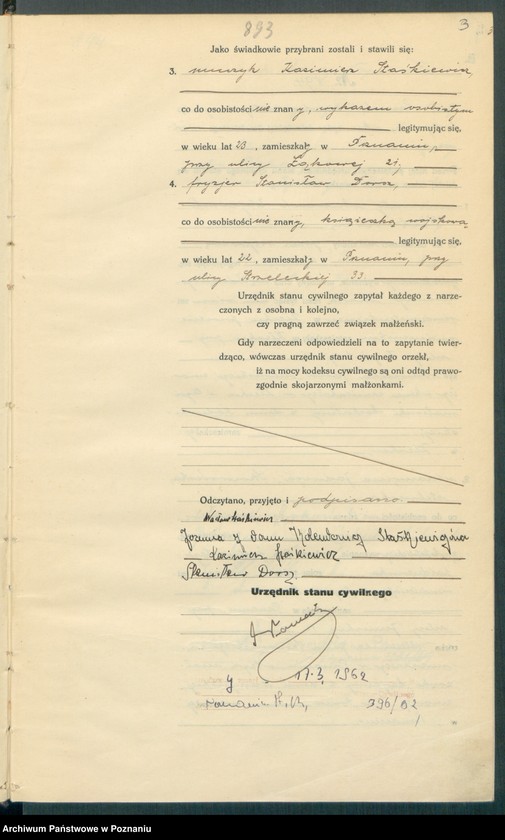 893
3
Jako świadkowie przybrani zostali i stawili się:
3. muzyk Kazimierz Staśkiewicz,
co do osobistości nie znany, wykazem osobistym
legitymując się,
w wieku lat 23, zamieszkały w Poznaniu,
przy ulicy Łąkowej 21,
4. fryzjer Stanisław Dorsz,
co do osobistości nie znany, książeczką wojskową
legitymując się,
w wieku lat 22, zamieszkały w Poznaniu, przy
ulicy Strzeleckiej 33
Urzędnik stanu cywilnego zapytał każdego z narze-
czonych z osobna i kolejno,
czy pragną zawrzeć związek małżeński.
Gdy narzeczeni odpowiedzieli na to zapytanie twier-
dząco, wówczas urzędnik stanu cywilnego orzekł,
iż na mocy kodeksu cywilnego są oni odtąd prawo-
zgodnie skojarzonymi małżonkami.
Odczytano, przyjęto i podpisano
Staśkiewicz
Joanna z domu Staśkiewiczowa
Kazimierz Staśkiewicz
Stanisław Dorsz
Urzędnik stanu cywilnego
17.3. 1962
396/62
Archiwum Państwowe w Poznaniu